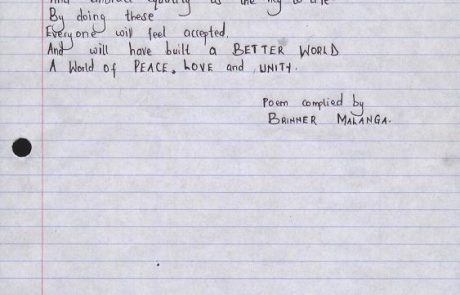 And embrace equality as the key to life
By doing these
Everyone will feel accepted.
And will have built a BETTER WORLD
A World of PEACE, LOVE and UNITY.
Poem complied by
BRINNER MALANGA.